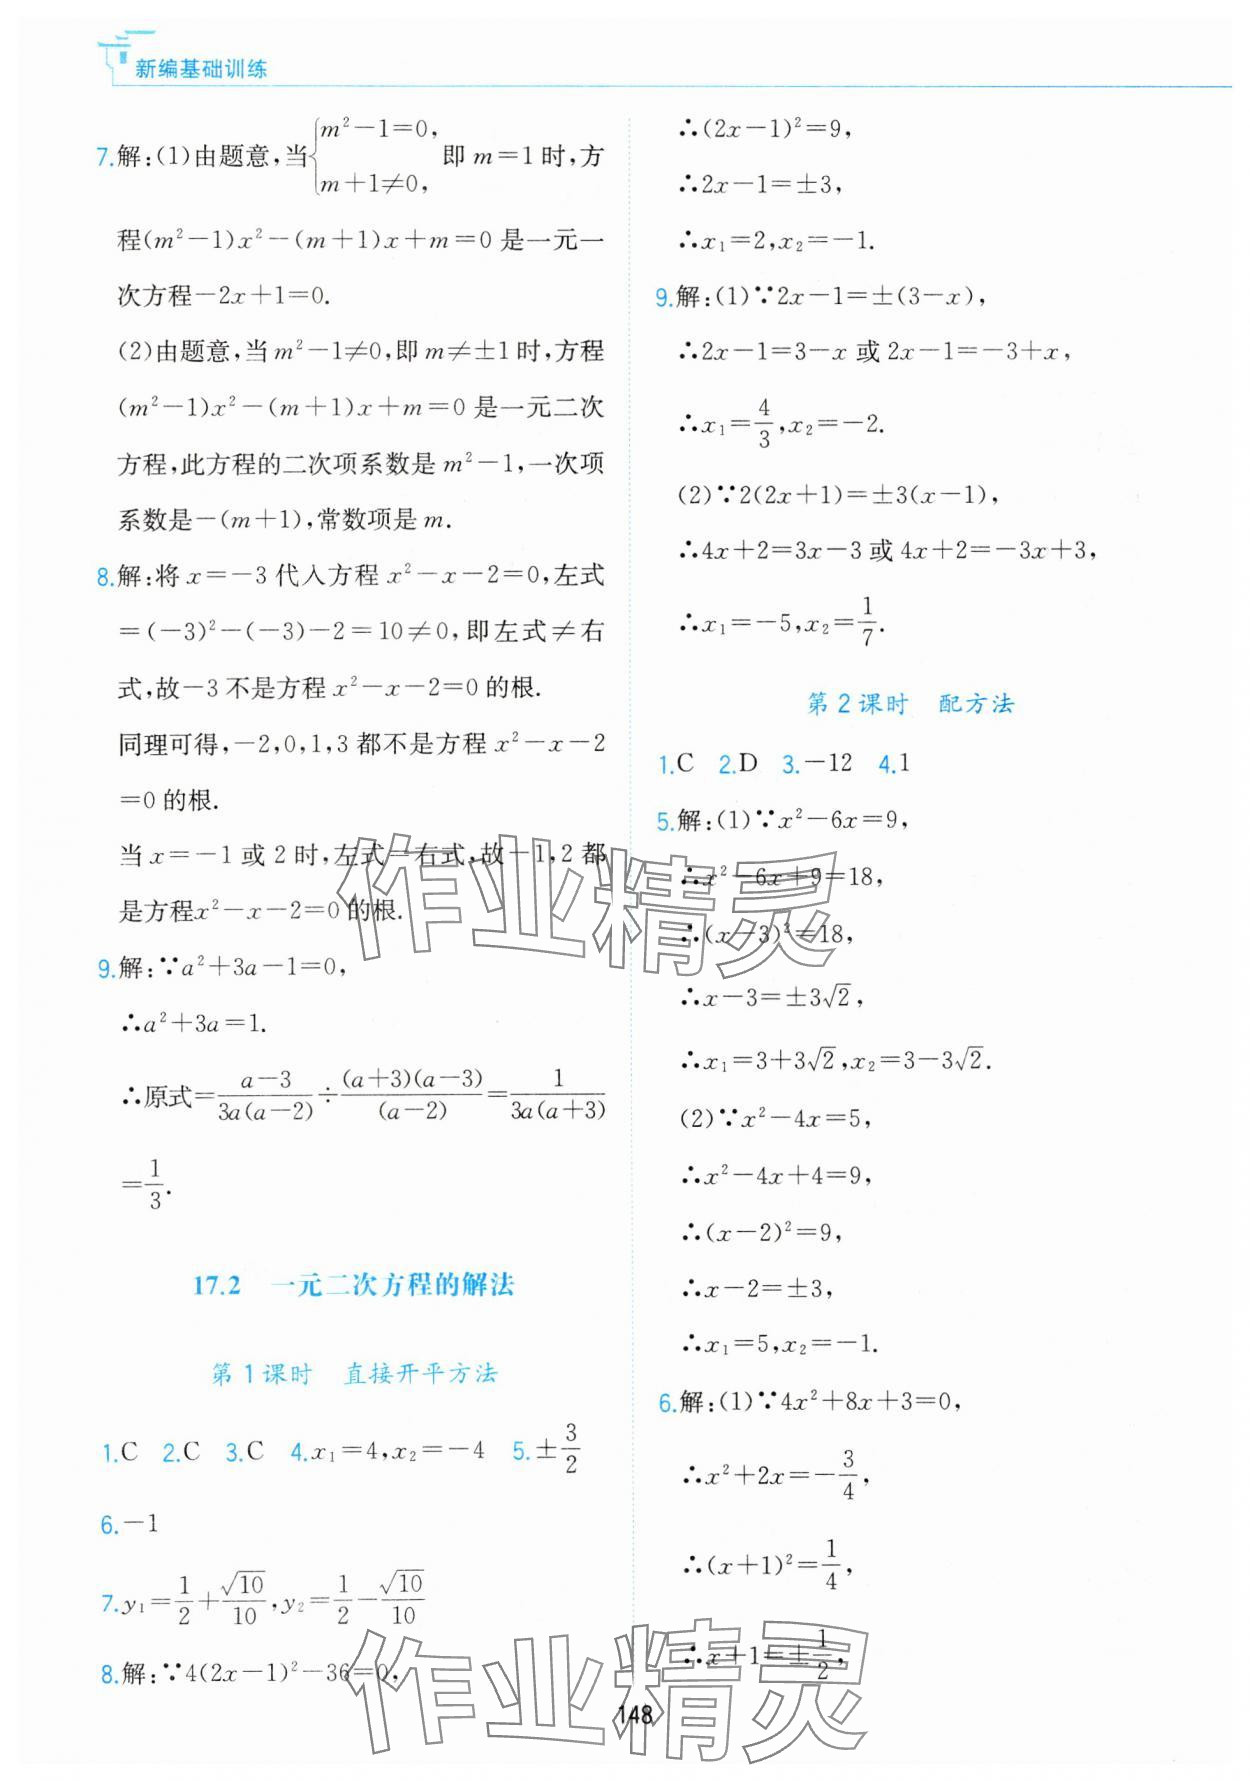 新编基础训练
7.解:(1)由题意,当{m²-1=0, m+1≠0, 即 m=1 时,方
程(m²-1)x²-(m+1)x+m=0 是一元一
次方程-2x+1=0.
(2)由题意,当 m²-1≠0,即 m≠±1 时,方程
(m²-1)x²-(m+1)x+m=0 是一元二次
方程,此方程的二次项系数是 m²-1,一次项
系数是-(m+1),常数项是 m.
8.解:将 x=-3 代入方程 x²-x-2=0,左式
=(-3)²-(-3)-2=10≠0,即左式≠右
式,故-3 不是方程 x²-x-2=0 的根.
同理可得,-2,0,1,3 都不是方程 x²-x-2
=0 的根.
当 x=-1 或 2 时,左式=右式,故-1,2 都
是方程x²-x-2=0 的根.
9.解:∵a²+3a-1=0,
∴a²+3a=1.
∴原式=(a-3)/(3a(a-2))÷((a+3)(a-3))/((a-2))=1/(3a(a+3))
=1/3.
17.2 一元二次方程的解法
第 1 课时 直接开平方法
1.C 2.C 3.C 4.x₁=4,x₂=-4 5.±3/2
6.-1
7.y₁=1/2+√10/10,y₂=1/2-√10/10
8.解:∵4(2x-1)²-36=0,
∴(2x-1)²=9,
∴2x-1=±3,
∴x₁=2,x₂=-1.
9.解:(1)∵2x-1=±(3-x),
∴2x-1=3-x 或 2x-1=-3+x,
∴x₁=4/3,x₂=-2.
(2)∵2(2x+1)=±3(x-1),
∴4x+2=3x-3 或 4x+2=-3x+3,
∴x₁=-5,x₂=1/7.
第 2 课时 配方法
1.C 2.D 3.-12 4.1
5.解:(1)∵x²-6x=9,
∴x²-6x+9=18,
∴(x-3)²=18,
∴x-3=±3√2,
∴x₁=3+3√2,x₂=3-3√2.
(2)∵x²-4x=5,
∴x²-4x+4=9,
∴(x-2)²=9,
∴x-2=±3,
∴x₁=5,x₂=-1.
6.解:(1)∵4x²+8x+3=0,
∴x²+2x=-3/4,
∴(x+1)²=1/4,
∴x+1=±1/2,
148
作业精灵
作业精灵